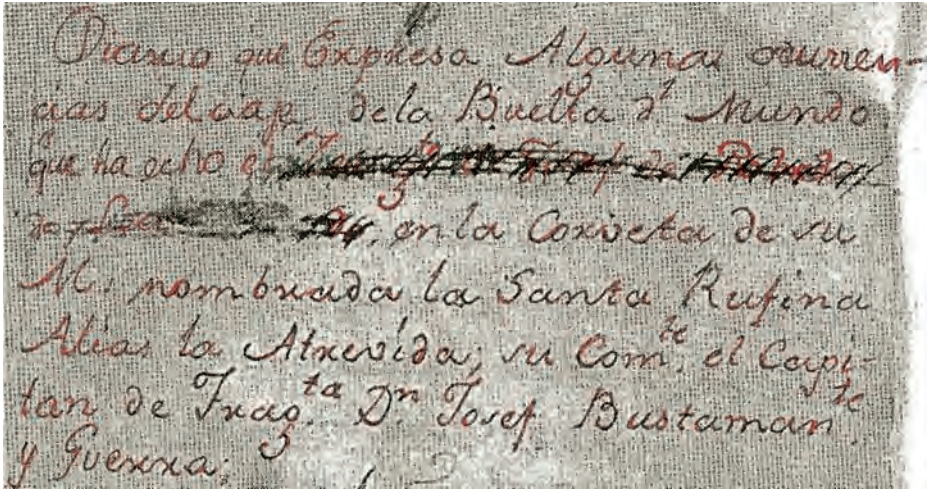 Diario que Expresa Algunas ocurren-
cias del viage dela Buelta d^l Mundo
que ha echo el
en la Corveta de su
M. nombrada la Santa Rufina
Alias la Atrevida; su Com^te. el Capi-
tan de Frag^ta. D^n Josef Bustaman^te.
y Guerra;